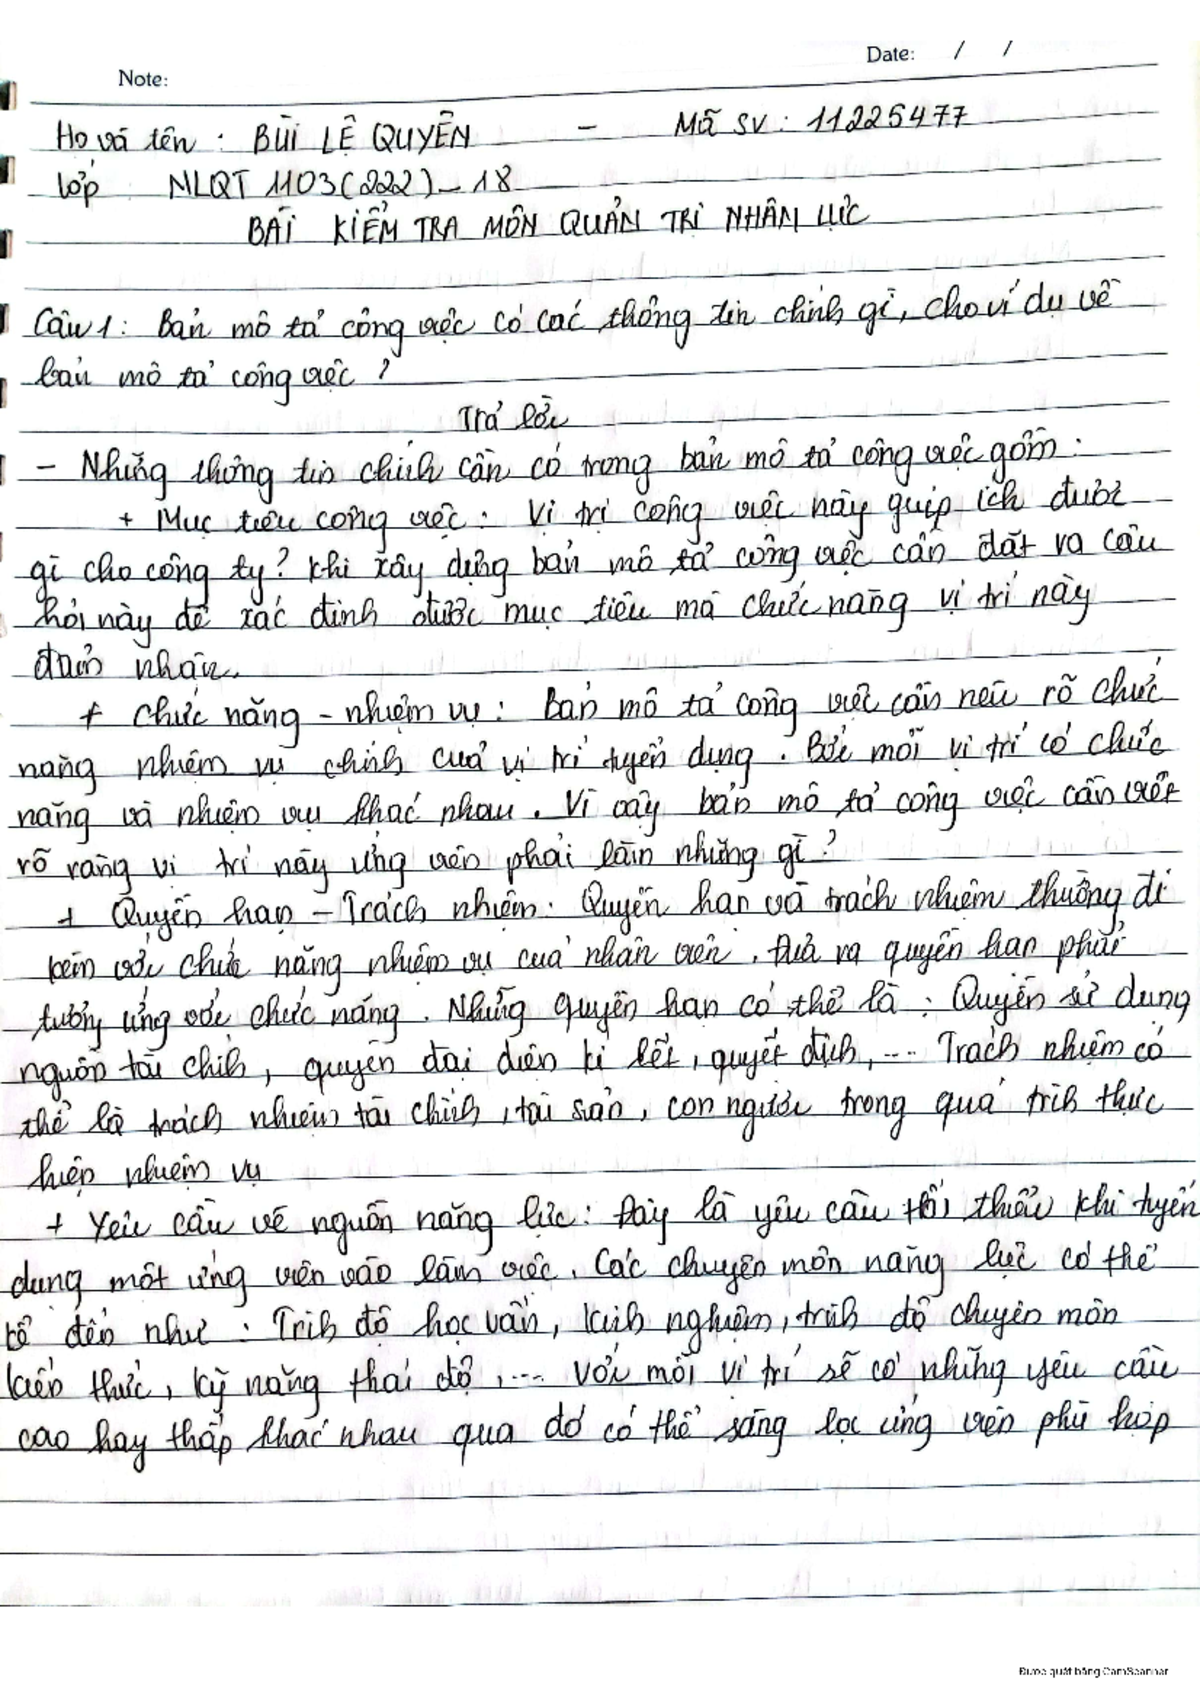 Date: / /
Note:
Họ và tên : BÙI LỆ QUYÊN - Mã SV : 11225477
lớp NLQT 1103(222)_18
BÀI KIỂM TRA MÔN QUẢN TRỊ NHÂN LỰC
Câu 1: Bản mô tả công việc có các thông tin chính gì, cho ví dụ về
bản mô tả công việc ?
Trả lời
- Những thông tin chính cần có trong bản mô tả công việc gồm :
+ Mục tiêu công việc : Vị trí công việc này giúp ích được
gì cho công ty? khi xây dựng bản mô tả công việc cần đặt ra câu
hỏi này để xác định được mục tiêu mà chức năng vị trí này
đảm nhận.
+ chức năng - nhiệm vụ : Bản mô tả công việc cần nêu rõ chức
năng nhiệm vụ chính của vị trí tuyển dụng . Bởi mỗi vị trí có chức
năng và nhiệm vụ khác nhau . Vì vậy bản mô tả công việc cần viết
rõ ràng vị trí này ứng viên phải làm những gì ?
+ Quyền hạn - Trách nhiệm : Quyền hạn và trách nhiệm thường đi
kèm với chức năng nhiệm vụ của nhân viên . Đưa ra quyền hạn phải
tương ứng với chức năng . Những quyền hạn có thể là : Quyền sử dụng
nguồn tài chính, quyền đại diện kí kết, quyết định, ... Trách nhiệm có
thể là trách nhiệm tài chính, tài sản, con người trong quá trình thực
hiện nhiệm vụ
+ Yêu cầu về nguồn năng lực : Đây là yêu cầu tối thiểu khi tuyển
dụng một ứng viên vào làm việc . Các chuyên môn năng lực có thể
kể đến như : Trình độ học vấn, kinh nghiệm, trình độ chuyên môn
kiến thức, kỹ năng thái độ, ... Với mỗi vị trí sẽ có những yêu cầu
cao hay thấp khác nhau qua đó có thể sàng lọc ứng viên phù hợp
Được quét bằng CamScanner